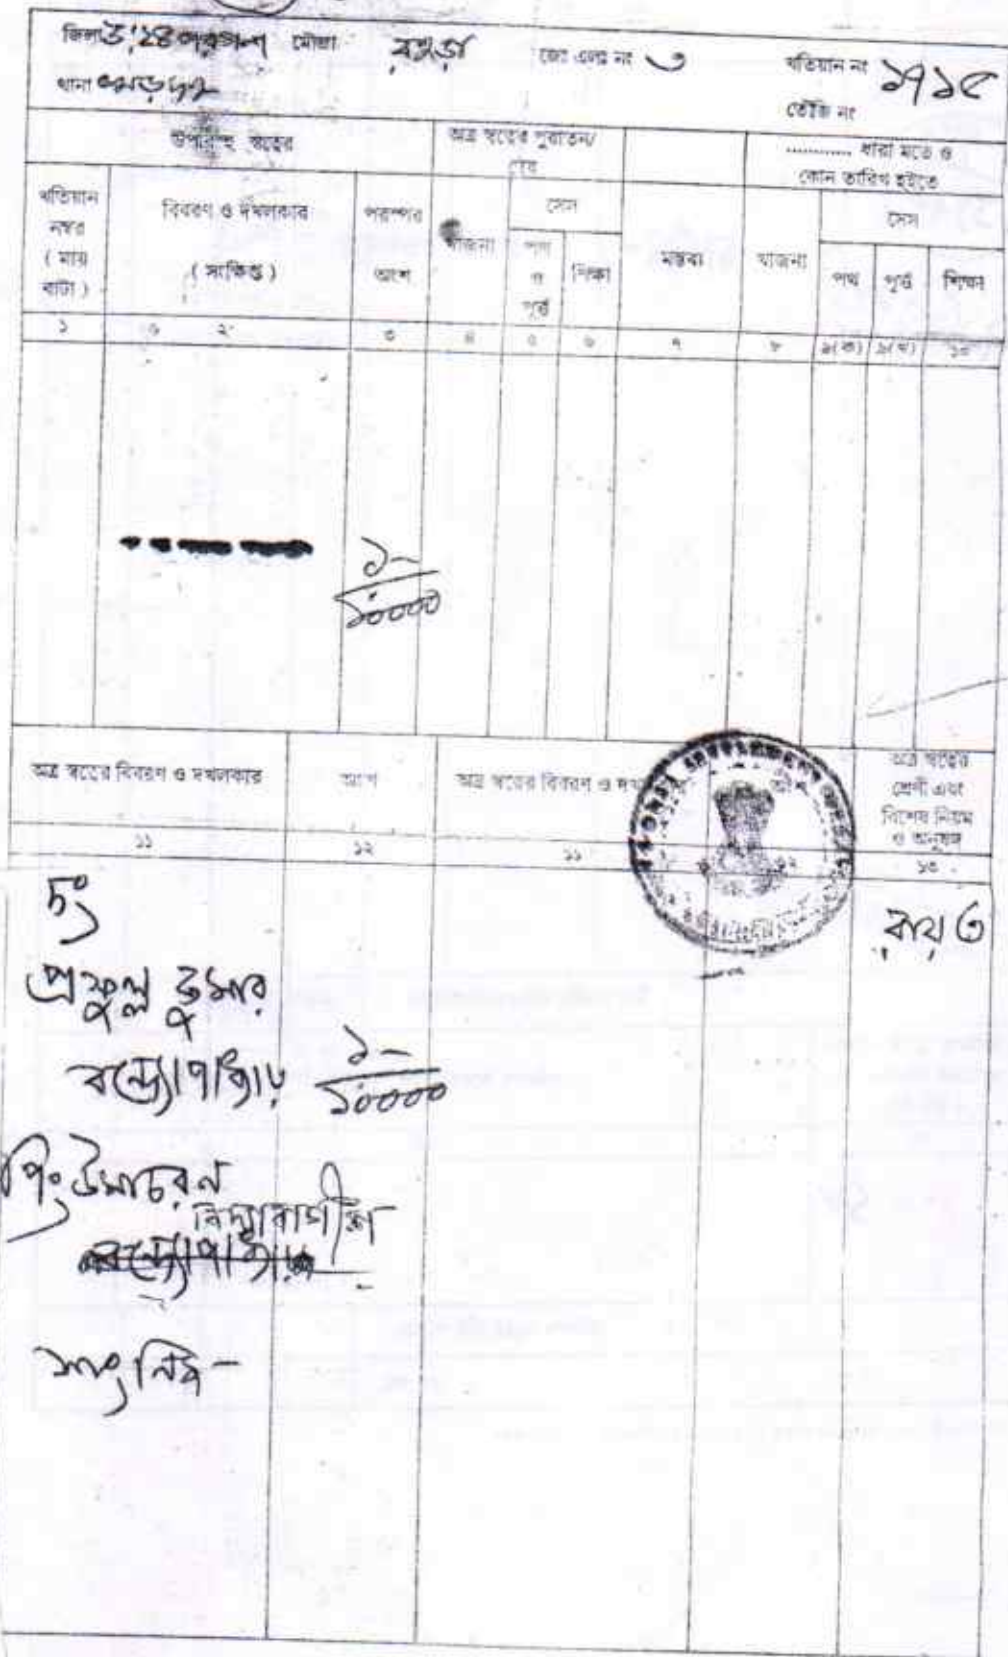 জিলা উঃ ২৪ পরগণা মৌজা রহড়া জে এল নং ৩ খতিয়ান নং ১৭১৫
থানা খড়দহ
তৌজি নং
উপরিস্থ স্বত্বের
অত্র স্বত্বের পুরাতন/
............ ধারা মতে ও
কোন তারিখ হইতে
খতিয়ান
নম্বর
( মায়
বাটা )
বিবরণ ও দখলকার
( সংক্ষিপ্ত )
পরস্পর
অংশ
খাজনা
সেস
পথ
ও
পূর্ত
শিক্ষা
মন্তব্য
খাজনা
সেস
পথ পূর্ত শিক্ষা
১ ২ ৩ ৪ ৫ ৬ ৭ ৮ ৯(ক) ৯(খ) ১০
১-
১০০০০
অত্র স্বত্বের বিবরণ ও দখলকার
অংশ
অত্র স্বত্বের বিবরণ ও
অংশ
অত্র স্বত্বের
শ্রেণী এবং
বিশেষ নিয়ম
ও অনুষঙ্গ
১১ ১২ ১১ ১২ ১৩
রায়ত
প্রফুল্ল কুমার
বন্দ্যোপাধ্যায় ১-
১০০০০
পিং উমাচরন
বিদ্যাবাগীশ
বন্দ্যোপাধ্যায়
সাং নিজ -